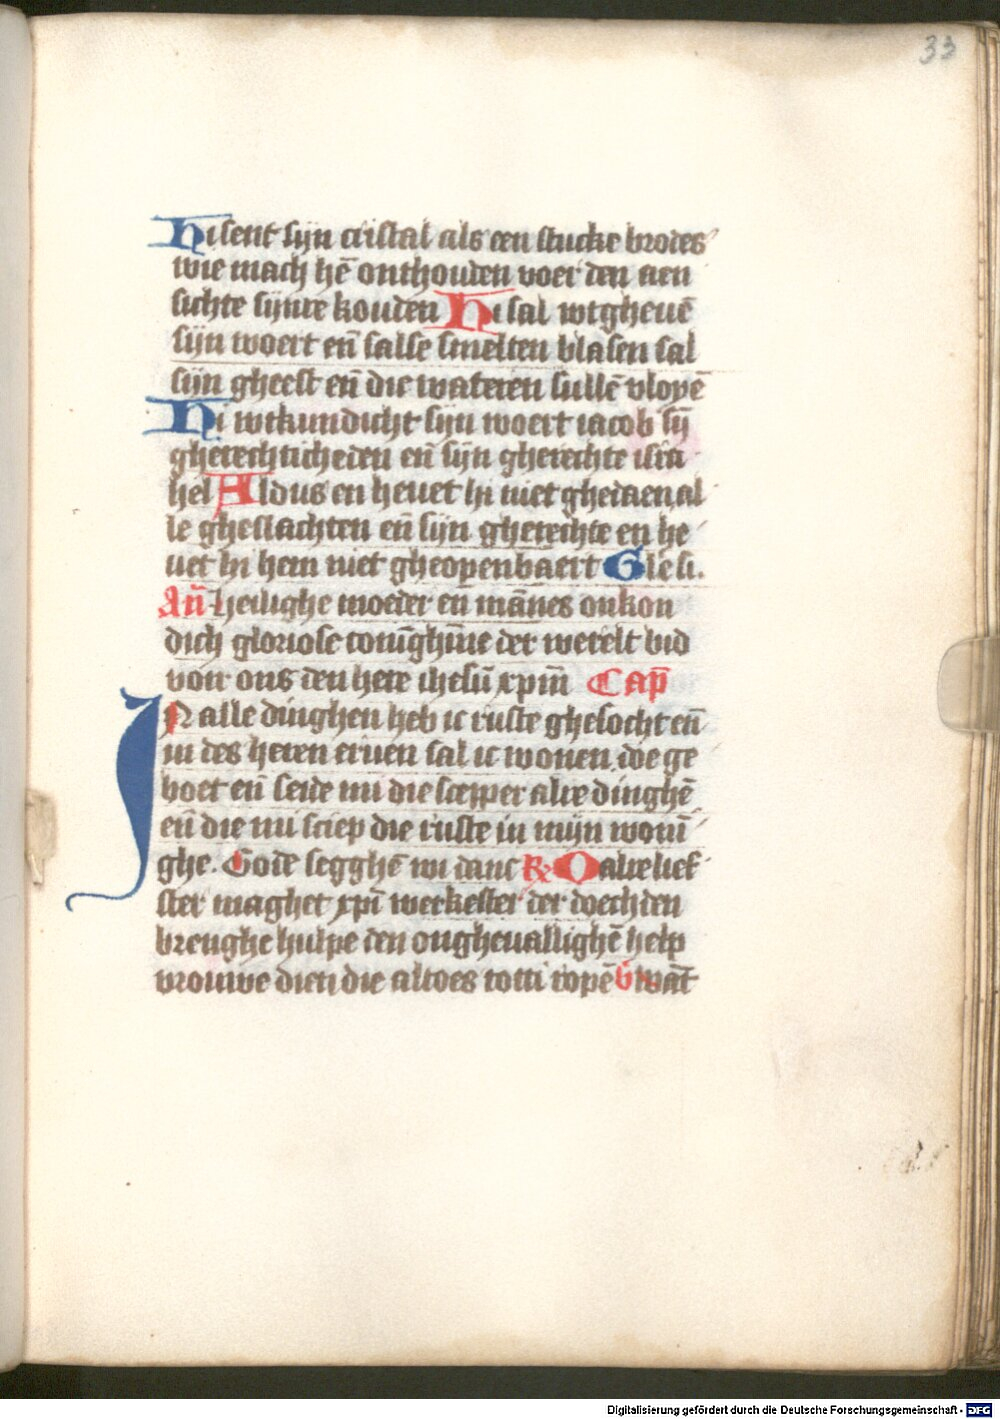 33
Hi sent sijn cristal als een stucke brodes
wie mach hē onthouden voer den aen
sichte sijnre kouden Hi sal wtgheuē
sijn woert eñ salse smelten blasen sal
sijn gheest eñ die wateren sullē vloyē
Hi wtkundicht sijn woert iacob sij
gherechticheden eñ sijn gherechte isra
hel Aldus en heuet hi niet ghedaen al
le gheslachten eñ sijn gherechte en he
uet hi hem niet gheopenbaert Gle si.
Añ Heilighe moeder en mānes onkon
dich gloriose coniighīne der werelt bid
voir ons den here ihesū xpm̄ Cap̄
IN alle dinghen heb ic ruste ghesocht eñ
in des heren eruen sal ic wonen. doe ge
boet eñ seide mi die scepper alre dinghē
eñ die mi sciep die ruste in mijn wonī
ghe. Gode segghē wi danc R O alre lief
ster maghet xpī werkester der doechden
brenghe hulpe den ongheuallighē help
vrouwe dien die altoes totti ropē V want
Digitalisierung gefördert durch die Deutsche Forschungsgemeinschaft - DFG